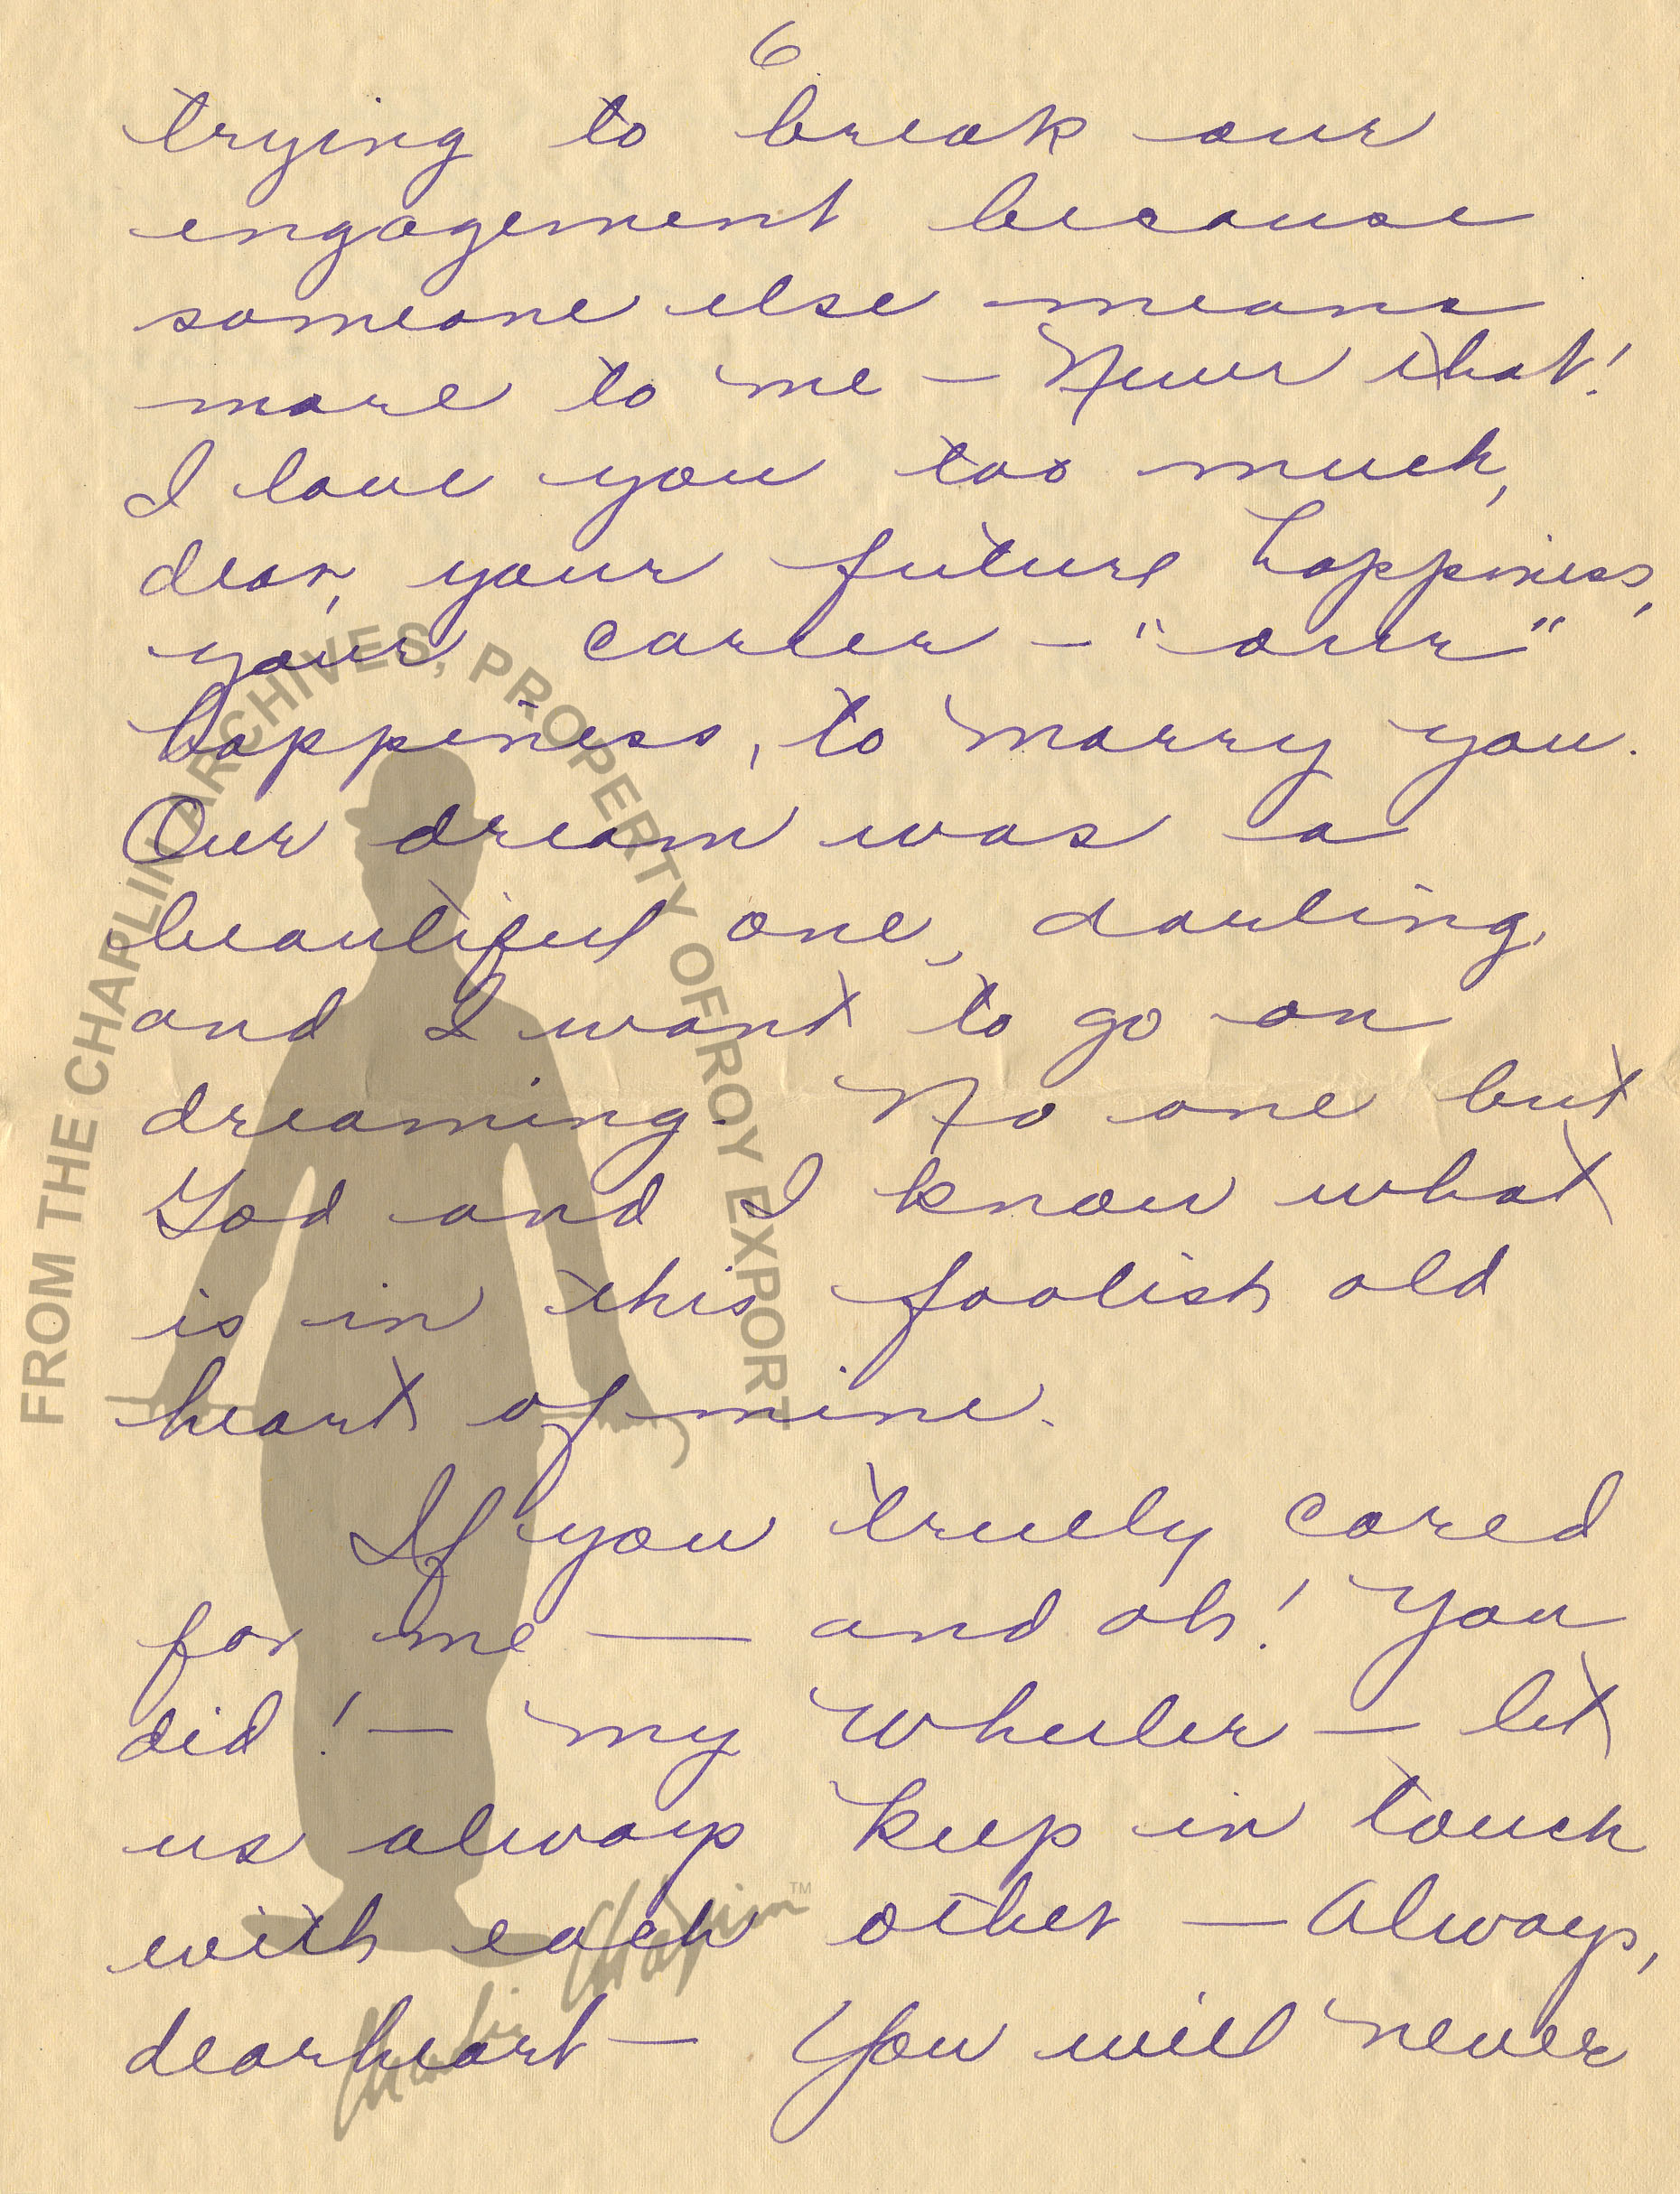 6
trying to break our
engagement because
someone else means
more to me — Never that!
I love you too much,
dear, your future happiness,
your career — "our"
happiness, to marry you.
Our dream was a
beautiful one, darling,
and I want to go on
dreaming. No one but
God and I know what
is in this foolish old
heart of mine.
If you truely cared
for me — and oh! You
did! — my Wheeler — let
us always keep in touch
with each other — Always,
dearheart — You will never
FROM THE CHAPLIN ARCHIVES, PROPERTY OF ROY EXPORT
Charlie Chaplin™